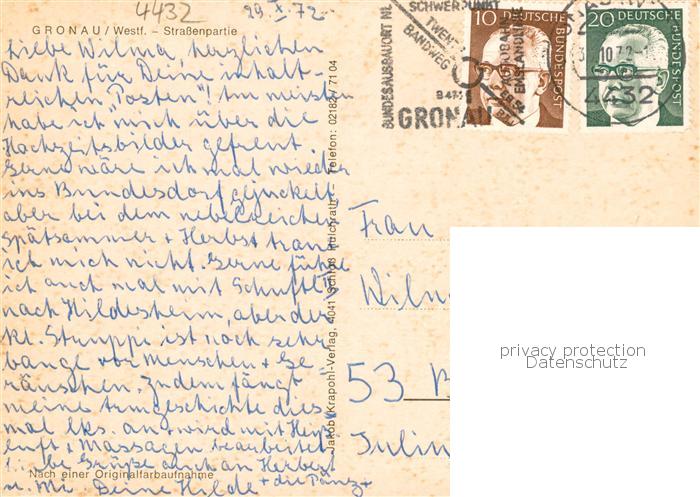 4432
29. X. 72.
GRONAU / Westf. – Straßenpartie
Liebe Wilma, herzlichen
Dank für Deine inhalt-
reichen "Posten"! Am meisten
habe ich mich über die
Hochzeitsbilder gefreut.
Gerne wäre ich mal wieder
ins Bundesdorf gejuckelt
aber bei dem nebelreichen
Spätsommer + Herbst trau
ich mich nicht. Gerne führe
ich auch mal mit
nach Hildesheim, aber der
kl. Struppi ist noch sehr
bange vor Menschen + Ge-
räuschen. Zudem fängt
meine Armgeschichte dies-
mal lks. an + wird mit Heiß-
luft + Massagen bearbeitet
Grüße auch an Herbert
Nach einer Originalfarbaufnahme
Deine Hilde
Jakob Krapohl-Verlag, 4041 Schloß Hülchrath, Telefon: 02182 / 71 04
BUNDESAUSBAUORT NI
SCHWERPUNKT
TWENTE
BANDWEG
GRONAU
EMSLANDLINIE
10 DEUTSCHE BUNDESPOST
20 DEUTSCHE BUNDESPOST
4432
Frau
Wilm
53 B
Julin
privacy protection
Datenschutz